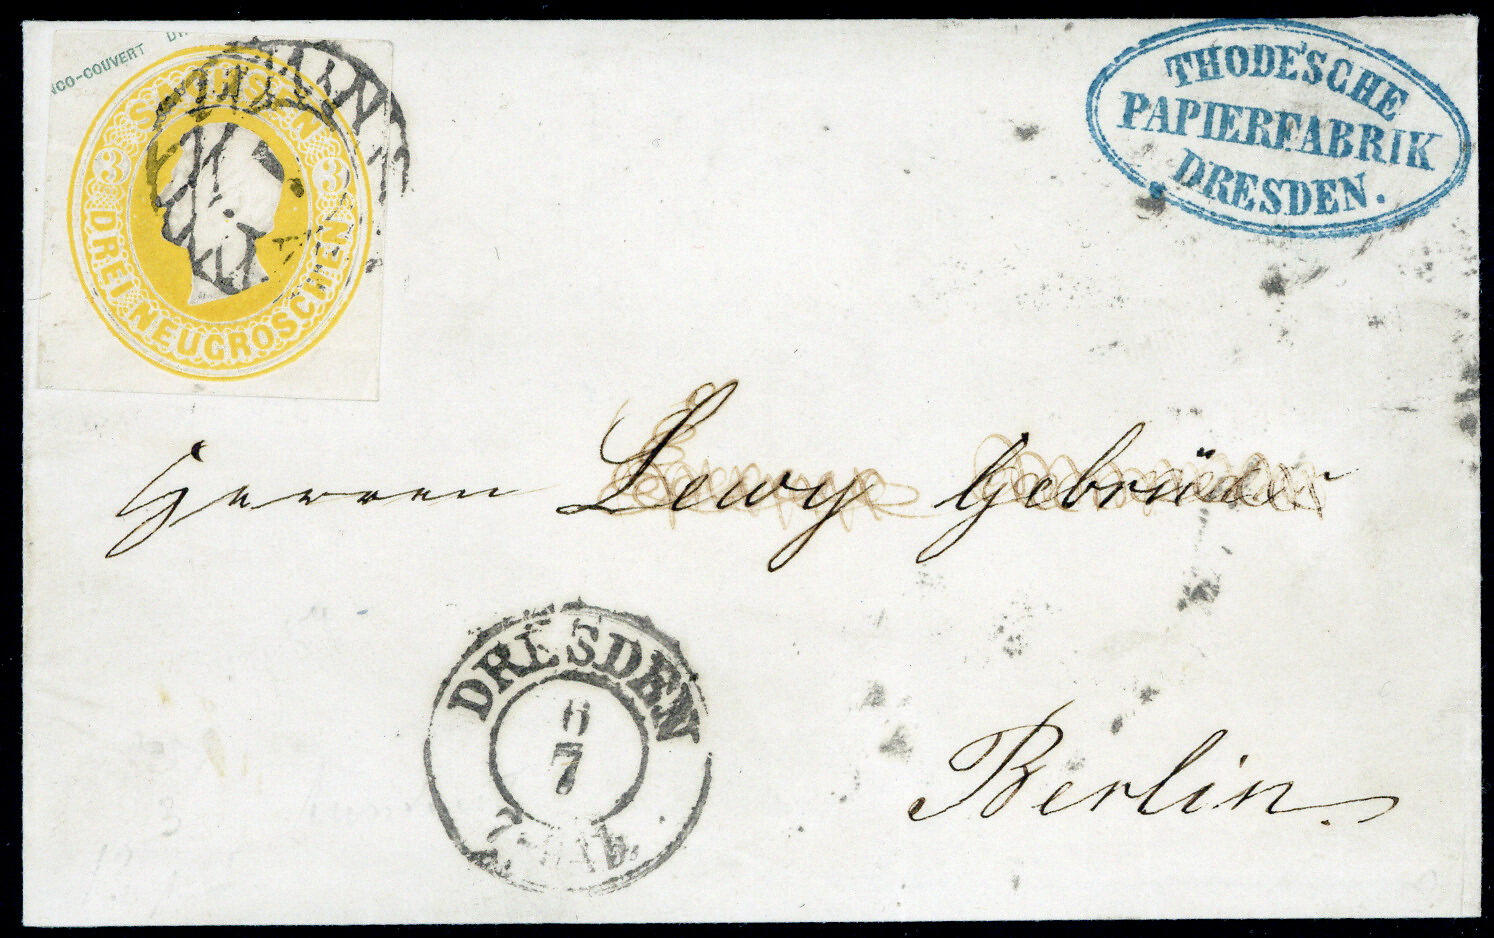 NCO-COUVERT
SACHSEN
3 3
DREI NEUGROSCHEN
THODE'SCHE
PAPIERFABRIK
DRESDEN.
Herren Lewy Gebrüder
DRESDEN
6
7
Berlin.